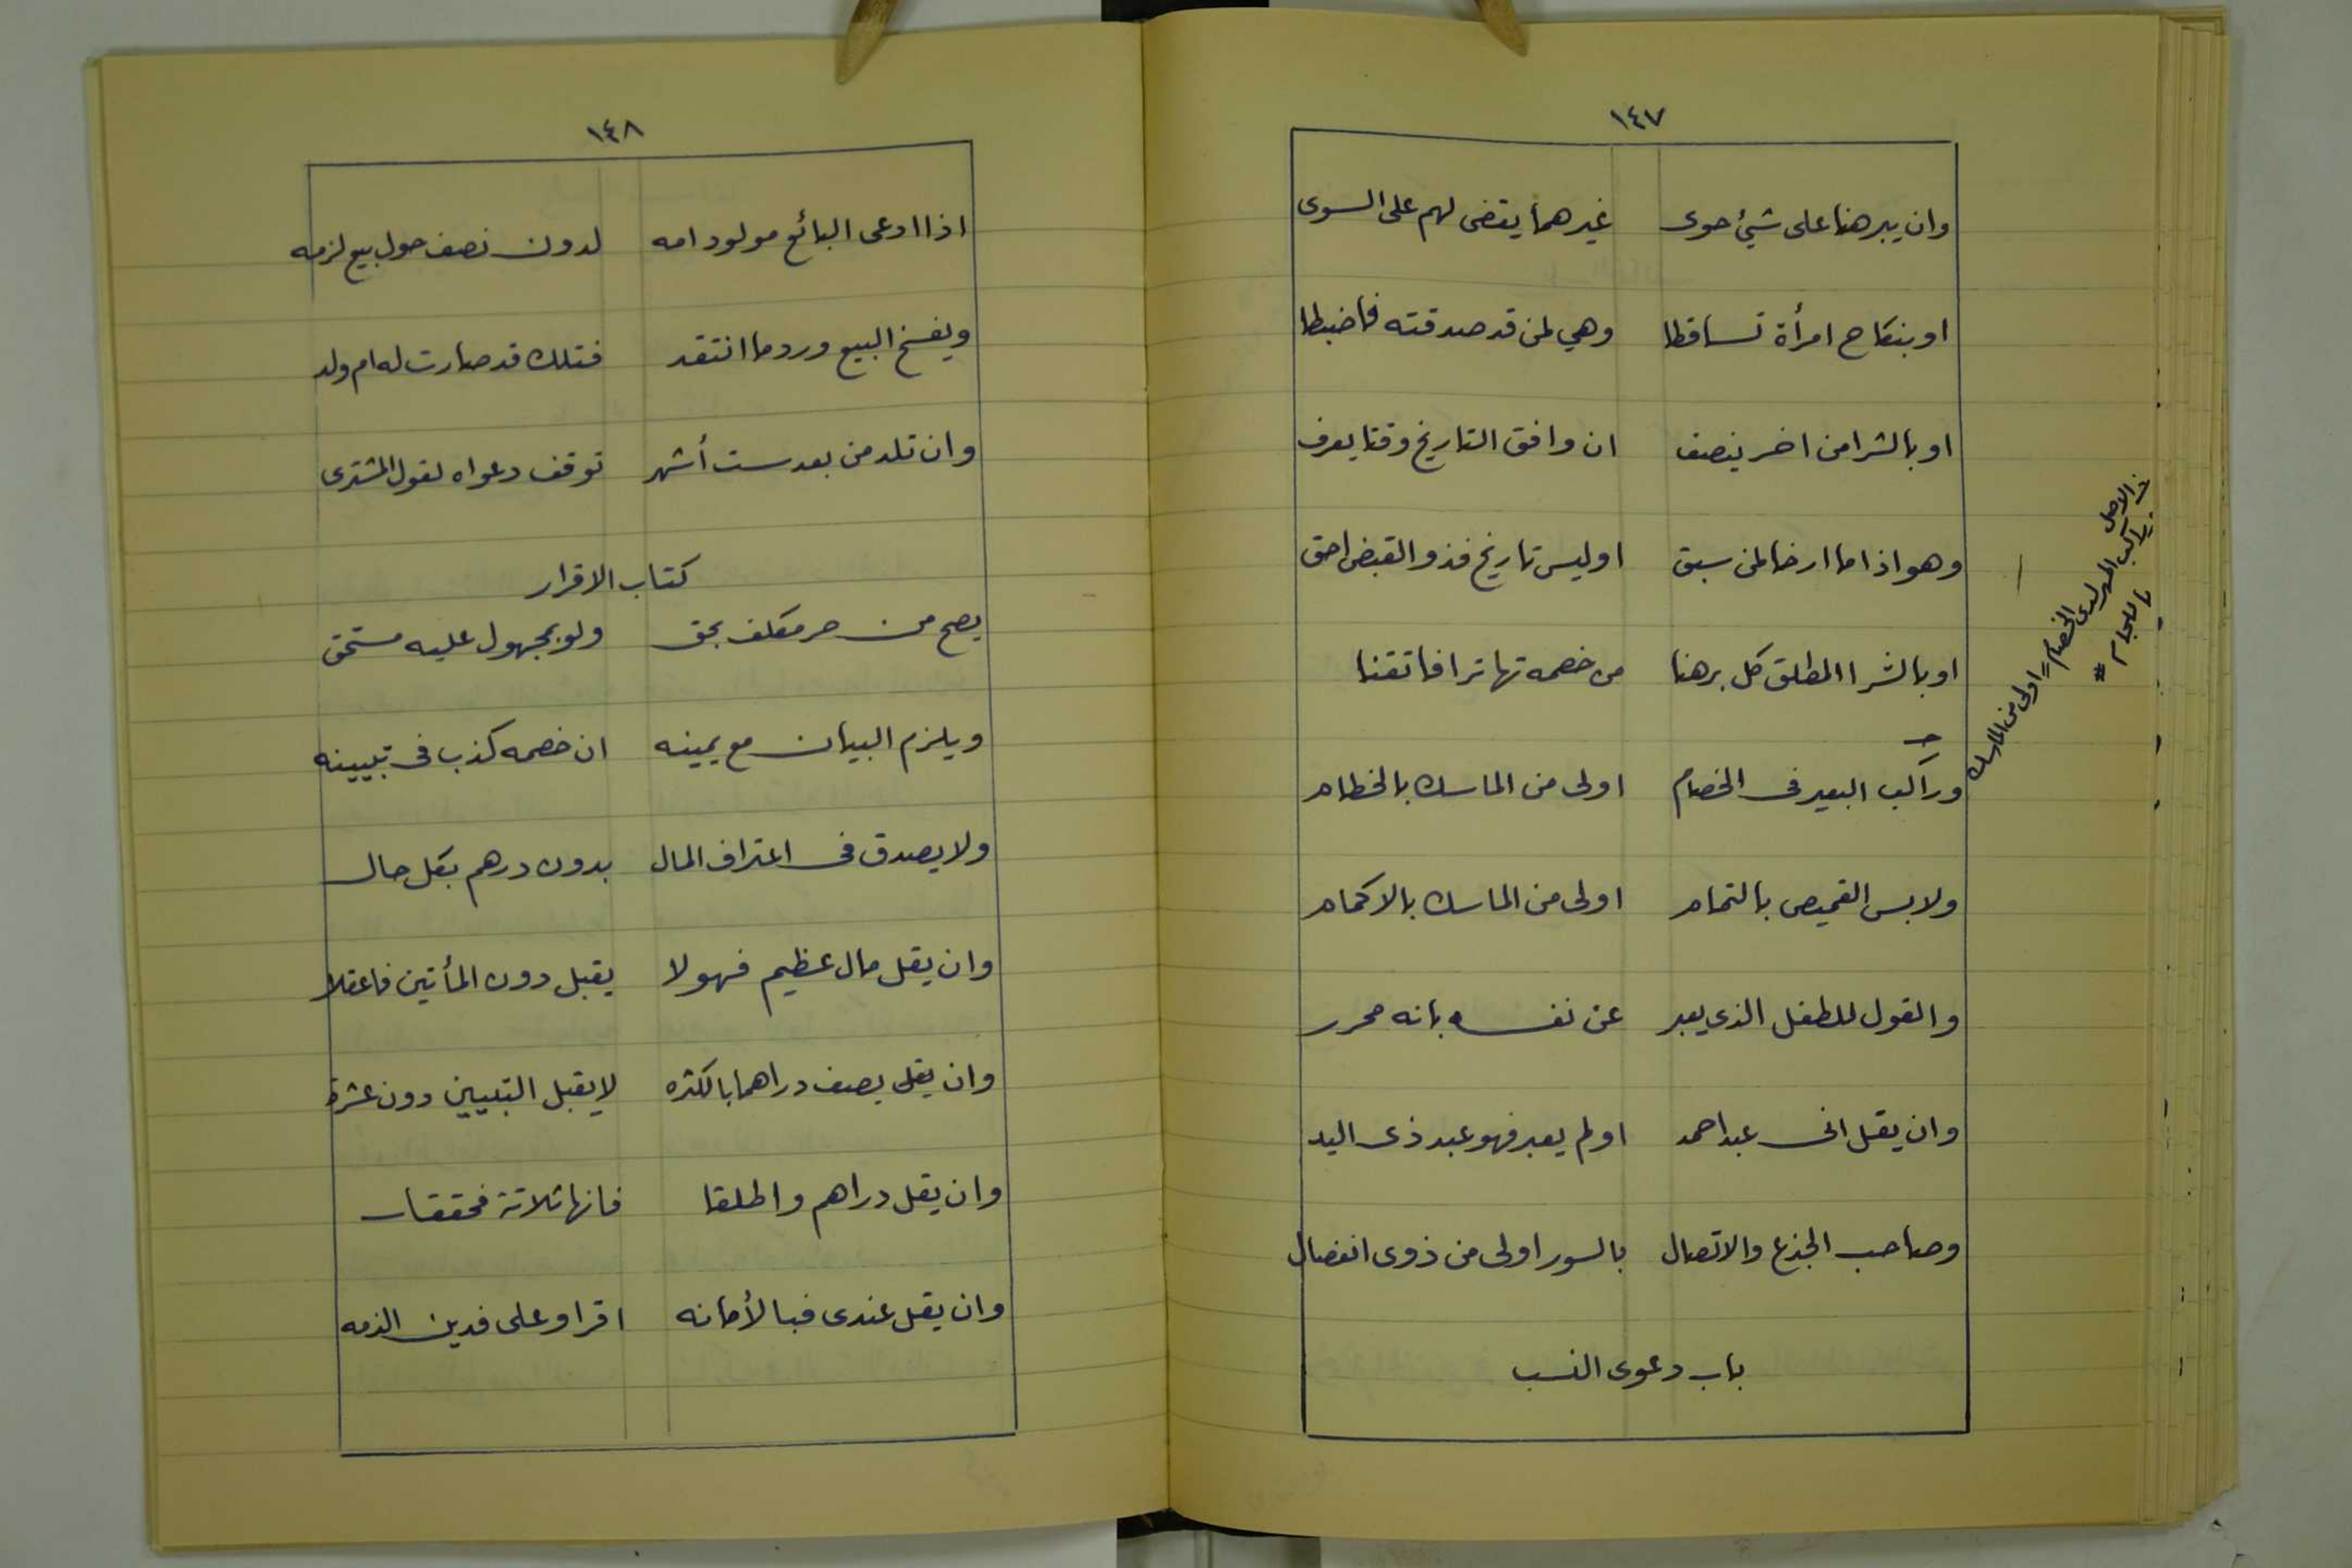 ١٤٧
وان يبرهنا على شيئ حوى غيرهما يقضى لهم على السوى
او بنكاح امرأة تساقطا وهي لمن قد صدقته فاضبطا
او بالشرا من اخر ينصف ان وافق التاريخ وقتا يعرف
وهو اذا ما ارخا لمن سبق او ليس تاريخ فذو القبض احق
او بالشرا المطلق كل برهنا من خصمه تهاترا فاتقنا
وراكب البعير فى الخصام اولى من الماسك بالخطام
ولابس القميص بالتمام اولى من الماسك بالاكمام
والقول للطفل الذى يعبر عن نفسه بانه محرر
وان يقل انى عبد احمد او لم يعبر فهو عبد ذى اليد
وصاحب الجذع والاتصال بالسور اولى من ذوى انفصال
باب دعوى النسب
فى الاصل
راكب المهر لدى الخصام = اولى من الماسك
باللجام #
١٤٨
اذا ادعى البائع مولود امه لدون نصف حول بيع لزمه
ويفسخ البيع ورد ما انتقد فتلك قد صارت له ام ولد
وان تلد من بعد ست أشهر توقف دعواه لقول المشترى
كتاب الاقرار
يصح من حر مكلف بحق ولو بمجهول عليه مستحق
ويلزم البيان مع يمينه ان خصمه كذب فى تبيينه
ولا يصدق فى اعتراف المال بدون درهم بكل حال
وان يقل مال عظيم فهو لا يقبل دون المأتين فاعقلا
وان يقل يصف دراهما بالكثره لا يقبل التبيين دون عشرة
وان يقل دراهم واطلقا فانها ثلاثة فحققا
وان يقل عندى فبالأمانه اقر او على فدين الذمه